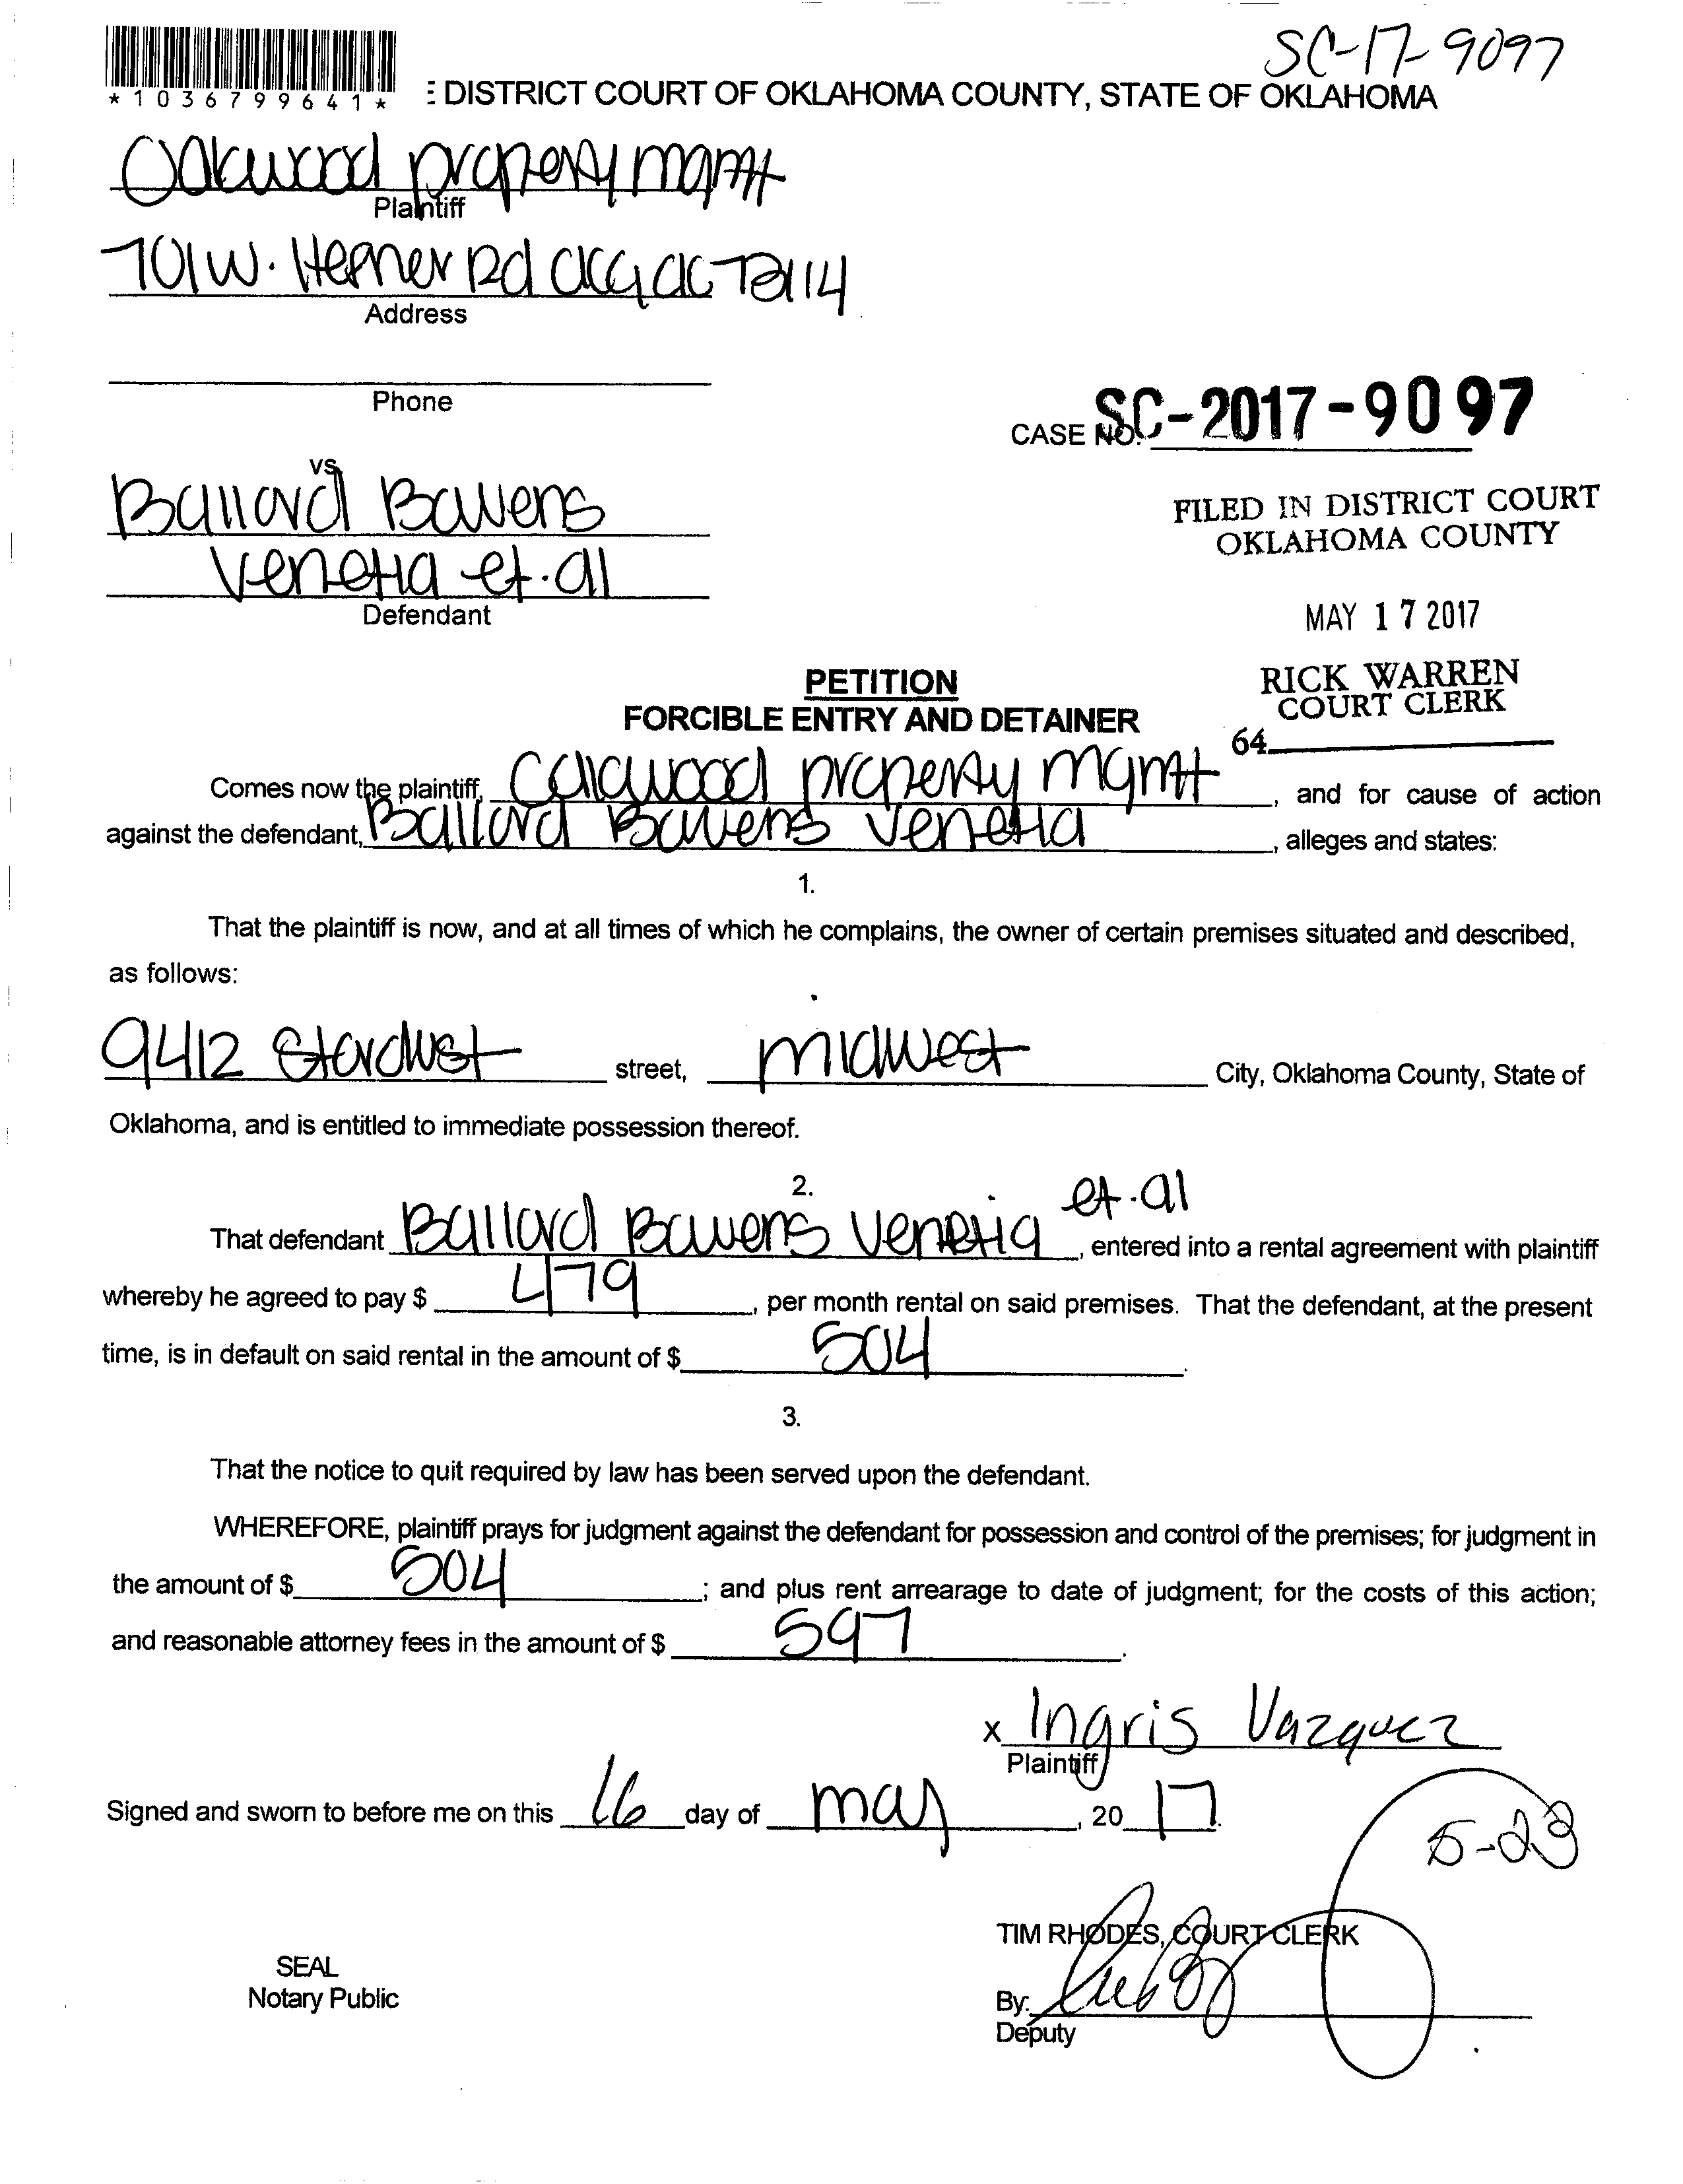 SC-17-9097
*1036799641*
E DISTRICT COURT OF OKLAHOMA COUNTY, STATE OF OKLAHOMA
Oakwood property mgmt
Plaintiff
701 W. Hefner Rd okc ok 73114
Address
Phone
CASE NO. SC-2017-9097
vs
Ballard Bowens
Venetia et.al
Defendant
FILED IN DISTRICT COURT
OKLAHOMA COUNTY
MAY 17 2017
RICK WARREN
COURT CLERK
64
PETITION
FORCIBLE ENTRY AND DETAINER
Comes now the plaintiff, Oakwood property mgmt, and for cause of action
against the defendant, Ballard Bowens Venetia, alleges and states:
1.
That the plaintiff is now, and at all times of which he complains, the owner of certain premises situated and described,
as follows:
9412 Stardust street, midwest City, Oklahoma County, State of
Oklahoma, and is entitled to immediate possession thereof.
2.
That defendant Ballard Bowens Venetia et.al, entered into a rental agreement with plaintiff
whereby he agreed to pay $ 479, per month rental on said premises. That the defendant, at the present
time, is in default on said rental in the amount of $ 504.
3.
That the notice to quit required by law has been served upon the defendant.
WHEREFORE, plaintiff prays for judgment against the defendant for possession and control of the premises; for judgment in
the amount of $ 504; and plus rent arrearage to date of judgment; for the costs of this action;
and reasonable attorney fees in the amount of $ 597.
x Ingris Vazquez
Plaintiff
Signed and sworn to before me on this 16 day of may, 20 17.
5-23
TIM RHODES, COURT CLERK
SEAL
Notary Public
By:
Deputy